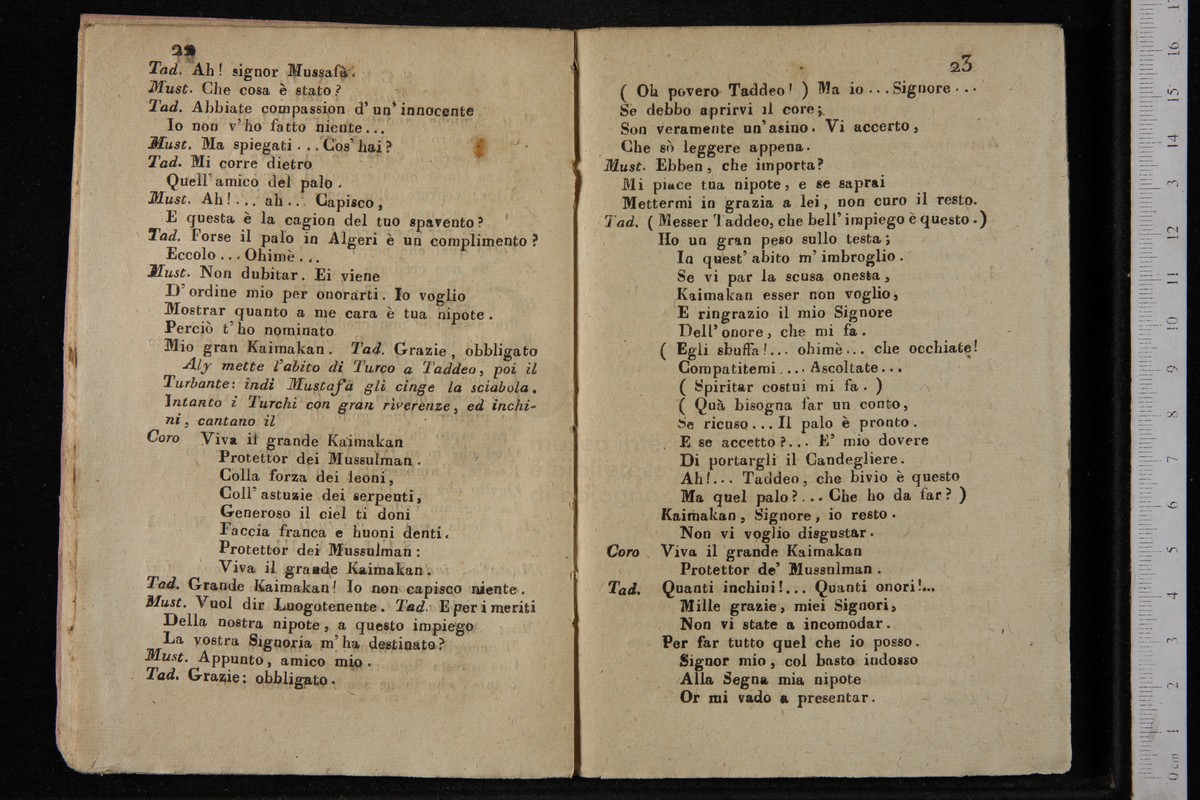 22
Tad. Ah! signor Mussafà.
Must. Che cosa è stato?
Tad. Abbiate compassion d'un'innocente
Io non v'ho fatto niente...
Must. Ma spiegati... Cos'hai?
Tad. Mi corre dietro
Quell'amico del palo.
Must. Ah!... ah... Capisco,
E questa è la cagion del tuo spavento?
Tad. Forse il palo in Algeri è un complimento?
Eccolo... Ohimè...
Must. Non dubitar. Ei viene
D'ordine mio per onorarti. Io voglio
Mostrar quanto a me cara è tua nipote.
Perciò t'ho nominato
Mio gran Kaimakan. Tad. Grazie, obbligato
Aly mette l'abito di Turco a Taddeo, poi il
Turbante: indi Mustafà gli cinge la sciabola.
Intanto i Turchi con gran riverenze, ed inchi-
ni, cantano il
Coro Viva il grande Kaimakan
Protettor dei Mussulman.
Colla forza dei leoni,
Coll'astuzie dei serpenti,
Generoso il ciel ti doni
Faccia franca e buoni denti.
Protettor dei Mussulman:
Viva il grande Kaimakan.
Tad. Grande Kaimakan! Io non capisco niente.
Must. Vuol dir Luogotenente. Tad. E per i meriti
Della nostra nipote, a questo impiego
La vostra Signoria m'ha destinato?
Must. Appunto, amico mio.
Tad. Grazie: obbligato.
23
( Oh povero Taddeo! ) Ma io... Signore...
Se debbo aprirvi il core;
Son veramente un'asino. Vi accerto,
Che sò leggere appena.
Must. Ebben, che importa?
Mi piace tua nipote, e se saprai
Mettermi in grazia a lei, non curo il resto.
Tad. ( Messer Taddeo, che bell'impiego è questo.)
Ho un gran peso sullo testa;
In quest'abito m'imbroglio.
Se vi par la scusa onesta,
Kaimakan esser non voglio,
E ringrazio il mio Signore
Dell'onore, che mi fa.
( Egli sbuffa!... ohimè... che occhiate!
Compatitemi.... Ascoltate...
( Spiritar costui mi fa. )
( Quà bisogna far un conto,
Se ricuso... Il palo è pronto.
E se accetto?... E' mio dovere
Di portargli il Candegliere.
Ah!... Taddeo, che bivio è questo
Ma quel palo?... Che ho da far? )
Kaimakan, Signore, io resto.
Non vi voglio disgustar.
Coro Viva il grande Kaimakan
Protettor de' Mussulman.
Tad. Quanti inchini!... Quanti onori!...
Mille grazie, miei Signori,
Non vi state a incomodar.
Per far tutto quel che io posso.
Signor mio, col basto indosso
Alla Segna mia nipote
Or mi vado a presentar.